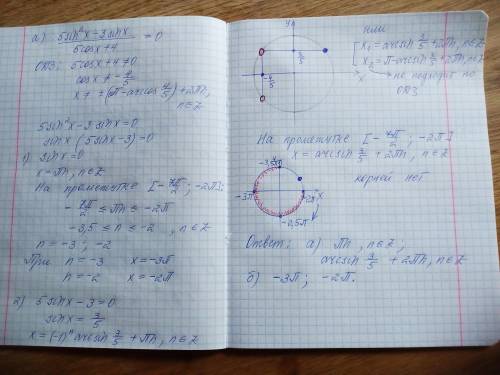 а) (5sin²x-3sinx)/(5cosx+4) = 0
ОДЗ: 5cosx+4≠0
cosx ≠ -4/5
x ≠ ±(π-arccos 4/5)+2πn,
n∈Z
5sin²x-3sinx=0
sinx(5sinx-3)=0
1) sinx=0
x=πn, n∈Z
На промежутке [-7π/2; -2π]:
-7π/2 ≤ πn ≤ -2π
-3,5 ≤ n ≤ -2, n∈Z
n=-3; -2
При n=-3 x=-3π
n=-2 x=-2π
2) 5sinx-3=0
sinx = 3/5
x=(-1)ⁿ arcsin 3/5 + πn, n∈Z
или
x₁=arcsin 3/5+2πn, n∈Z
x₂=π-arcsin 3/5+2πn, n∈Z
не подходит по
ОДЗ
y
3/5
-4/5
x
На промежутке [-7π/2; -2π]
x=arcsin 3/5+2πn, n∈Z
корней нет
-3,5π
-3π
-2π
x
-2,5π
Ответ: а) πn, n∈Z;
arcsin 3/5 + 2πn, n∈Z
б) -3π; -2π.